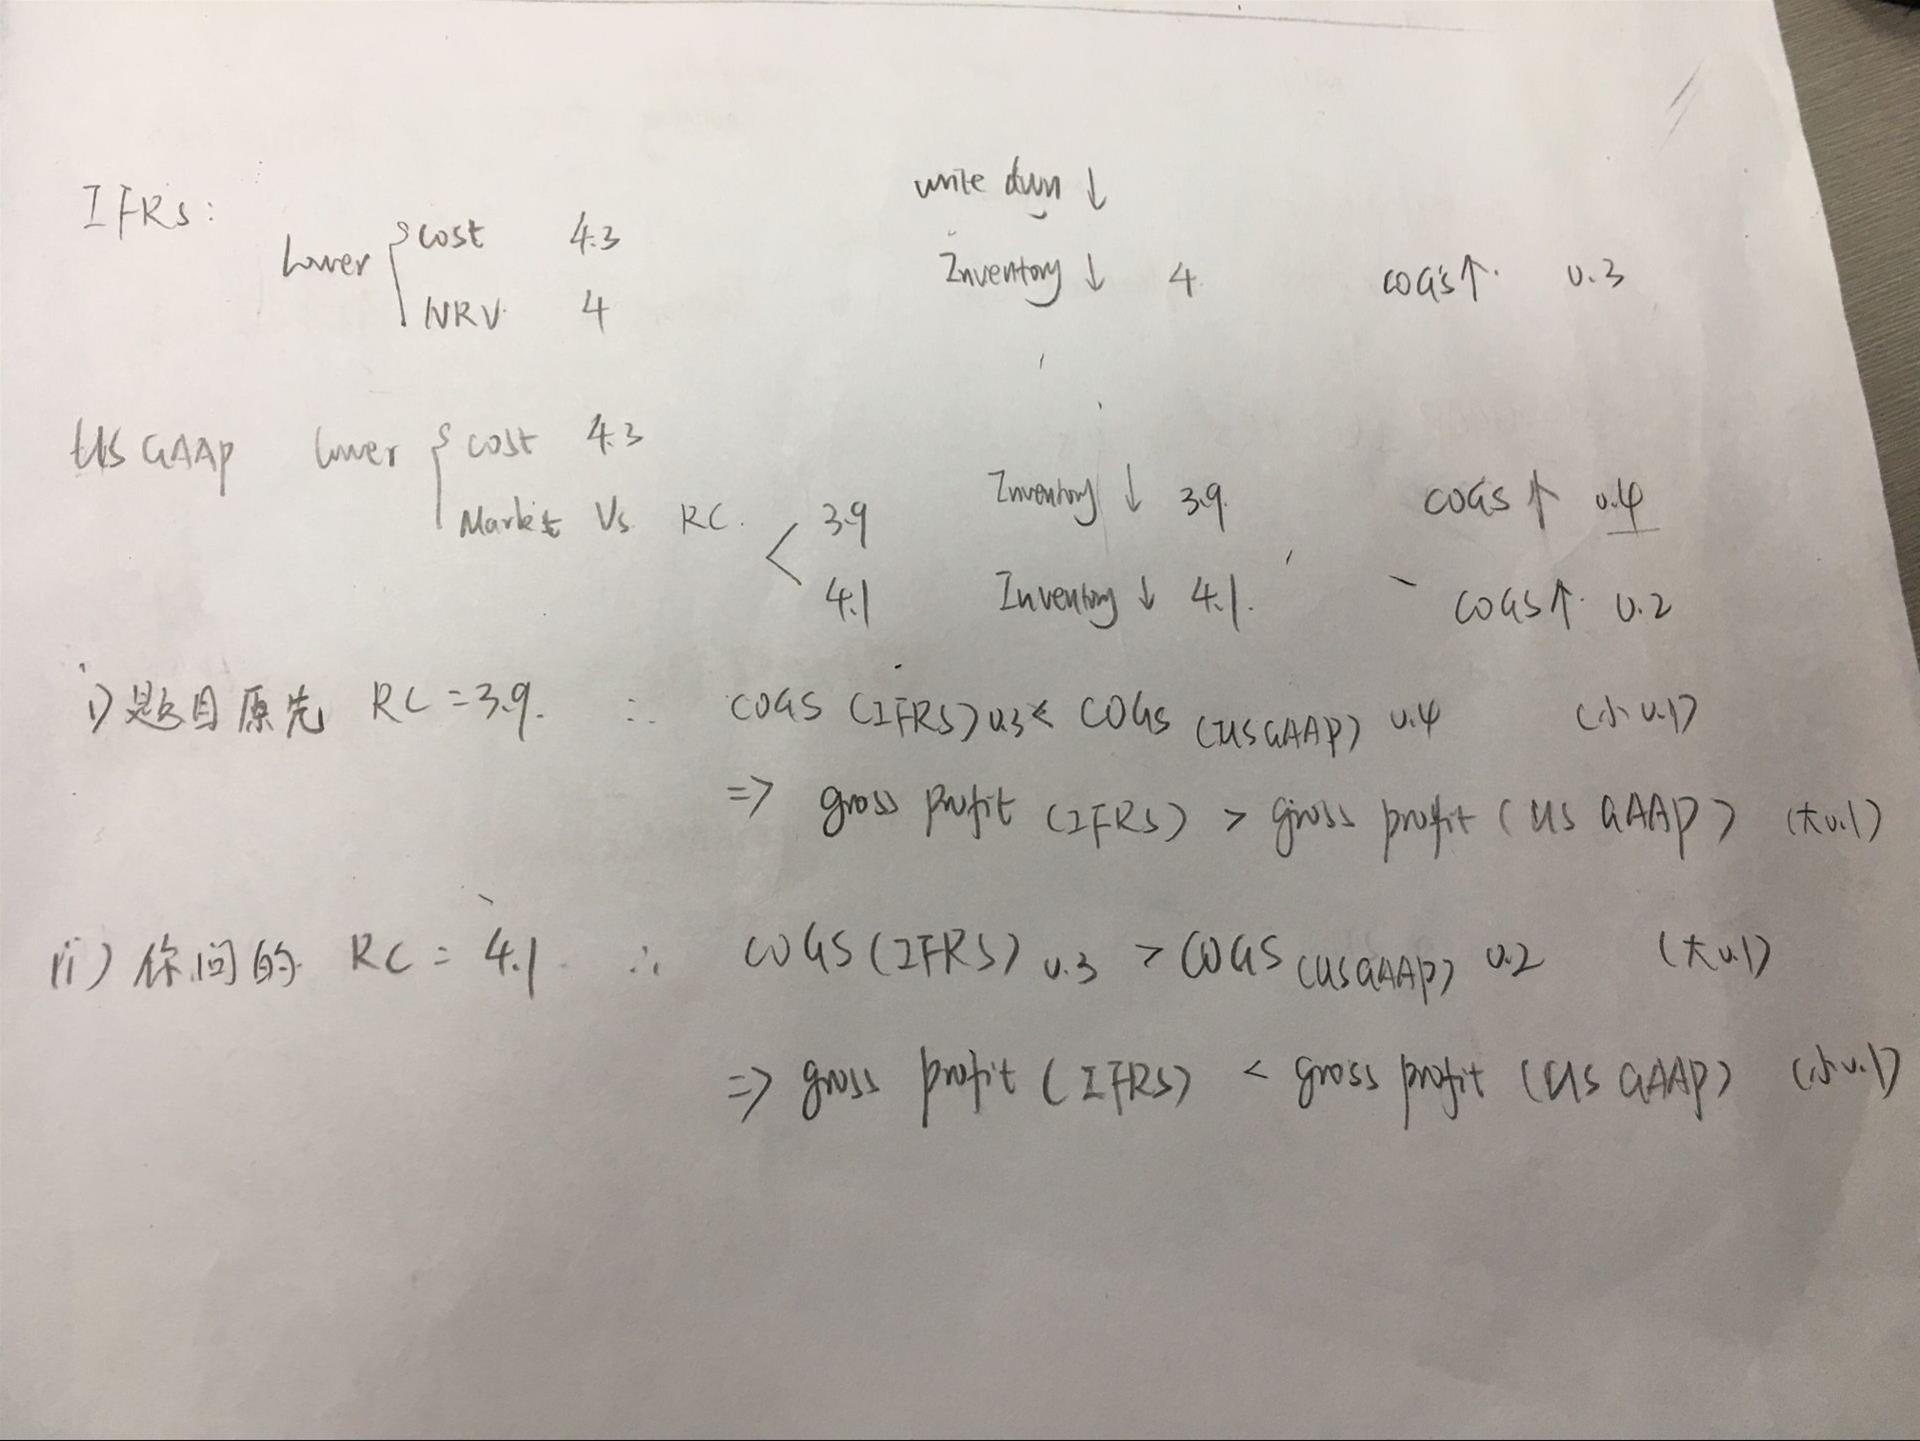 write down ↓
IFRS:
Lower { cost 4.3
NRV 4
Inventory ↓ 4 COGS↑ 0.3
US GAAP Lower { cost 4.3
Market Vs RC. < 3.9 Inventory ↓ 3.9 COGS ↑ 0.4
4.1 Inventory ↓ 4.1. COGS↑ 0.2
i) 题目原先 RC=3.9. ∴ COGS (IFRS) 0.3 < COGS (US GAAP) 0.4 (小0.1)
=> gross profit (IFRS) > gross profit (US GAAP) (大0.1)
ii) 你问的 RC = 4.1 ∴ COGS (IFRS) 0.3 > COGS (US GAAP) 0.2 (大0.1)
=> gross profit (IFRS) < gross profit (US GAAP) (小0.1)